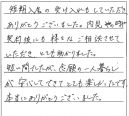 短期入居の受け入れをしていただき
ありがとうございました。内見や
契約後にも様々なご相談させて
いただき とても助かりました。
短い間でしたが、念願の一人暮らし
が 安心してできて とても楽しかったです
本当にありがとうございました。